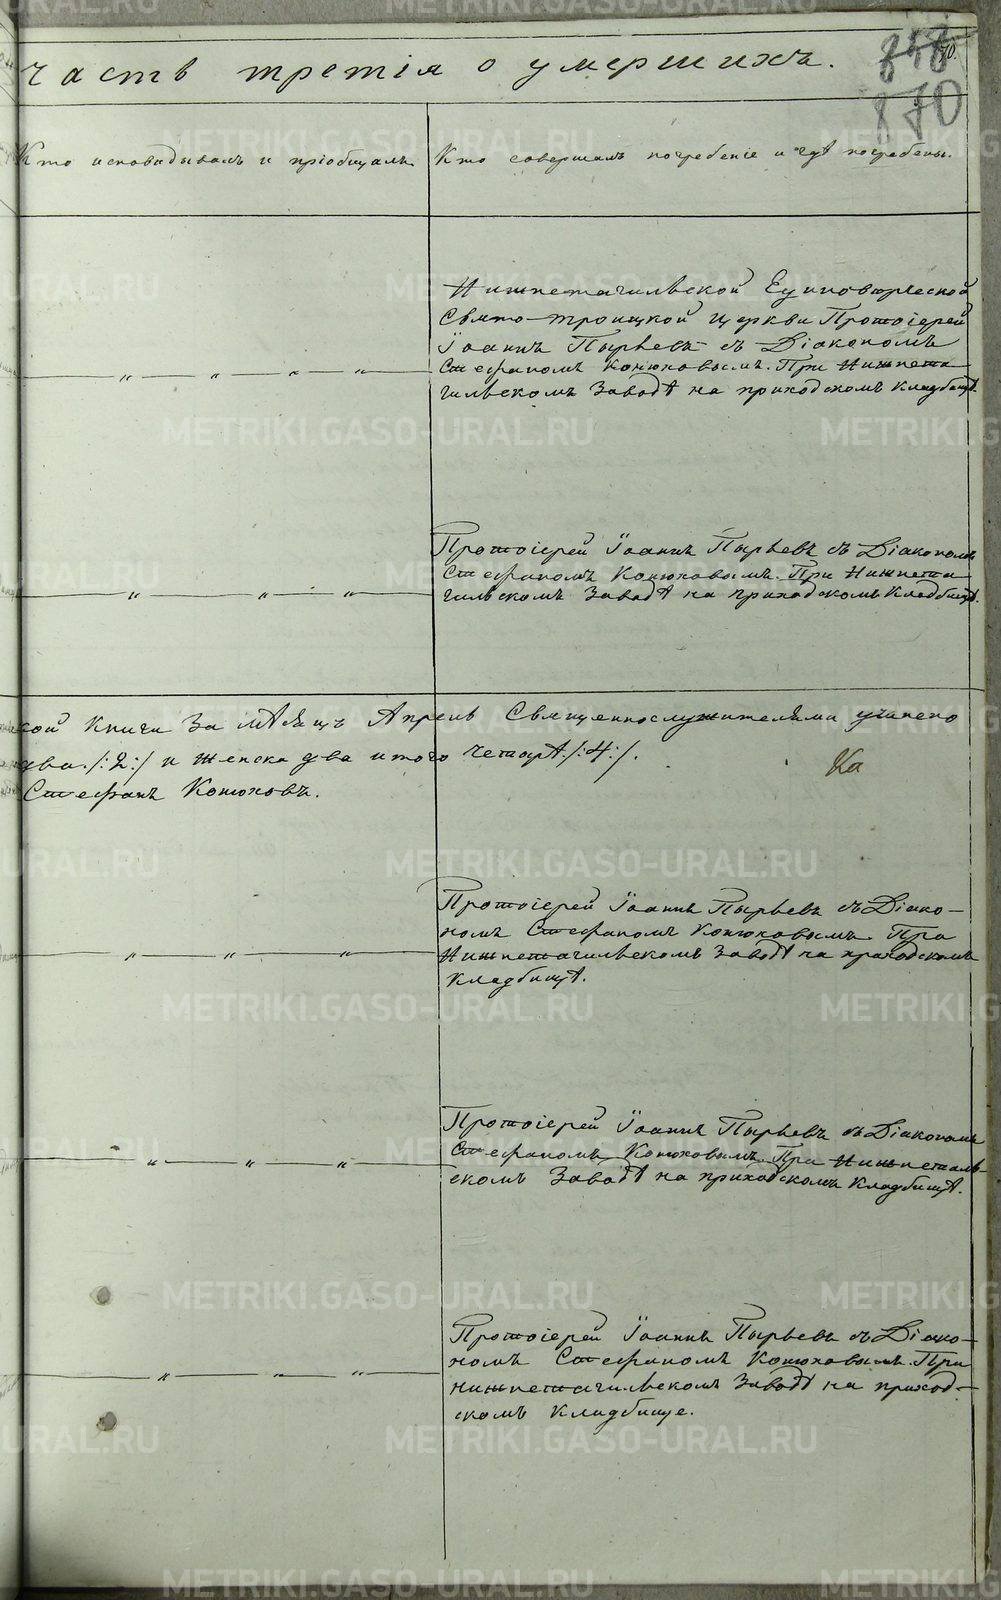 Часть третія о умершихъ.
870
Кто исповѣдывалъ и пріобщалъ.
Кто совершалъ погребеніе и гдѣ погребены.
Нижнетагильской Единовѣрческой
Свято-Троицкой Церкви Протоіерей
Іоаннъ Пырьевъ съ Діакономъ
Стефаномъ Конюховымъ. При Нижнета
гильскомъ Заводѣ на приходскомъ Кладбищѣ.
" " " "
Протоіерей Іоаннъ Пырьевъ съ Діакономъ
Стефаномъ Конюховымъ. При Нижнета
гильскомъ Заводѣ на приходскомъ Кладбищѣ.
" " "
кой Книги За мѣсяцъ Апрель Священнослужителями учинено
два /:2:/ и женска два итого четыре /:4:/.
Ка
Стефанъ Конюховъ.
Протоіерей Іоаннъ Пырьевъ съ Діако-
номъ Стефаномъ Конюховымъ. При
Нижнетагильскомъ Заводѣ на приходскомъ
Кладбищѣ.
" " "
Протоіерей Іоаннъ Пырьевъ съ Діакономъ
Стефаномъ Конюховымъ. При Нижнетагиль-
скомъ Заводѣ на приходскомъ Кладбищѣ.
" " "
Протоіерей Іоаннъ Пырьевъ съ Діако-
номъ Стефаномъ Конюховымъ. При
Нижнетагильскомъ Заводѣ на приход-
скомъ Кладбище.
" " "
METRIKI.GASO-URAL.RU